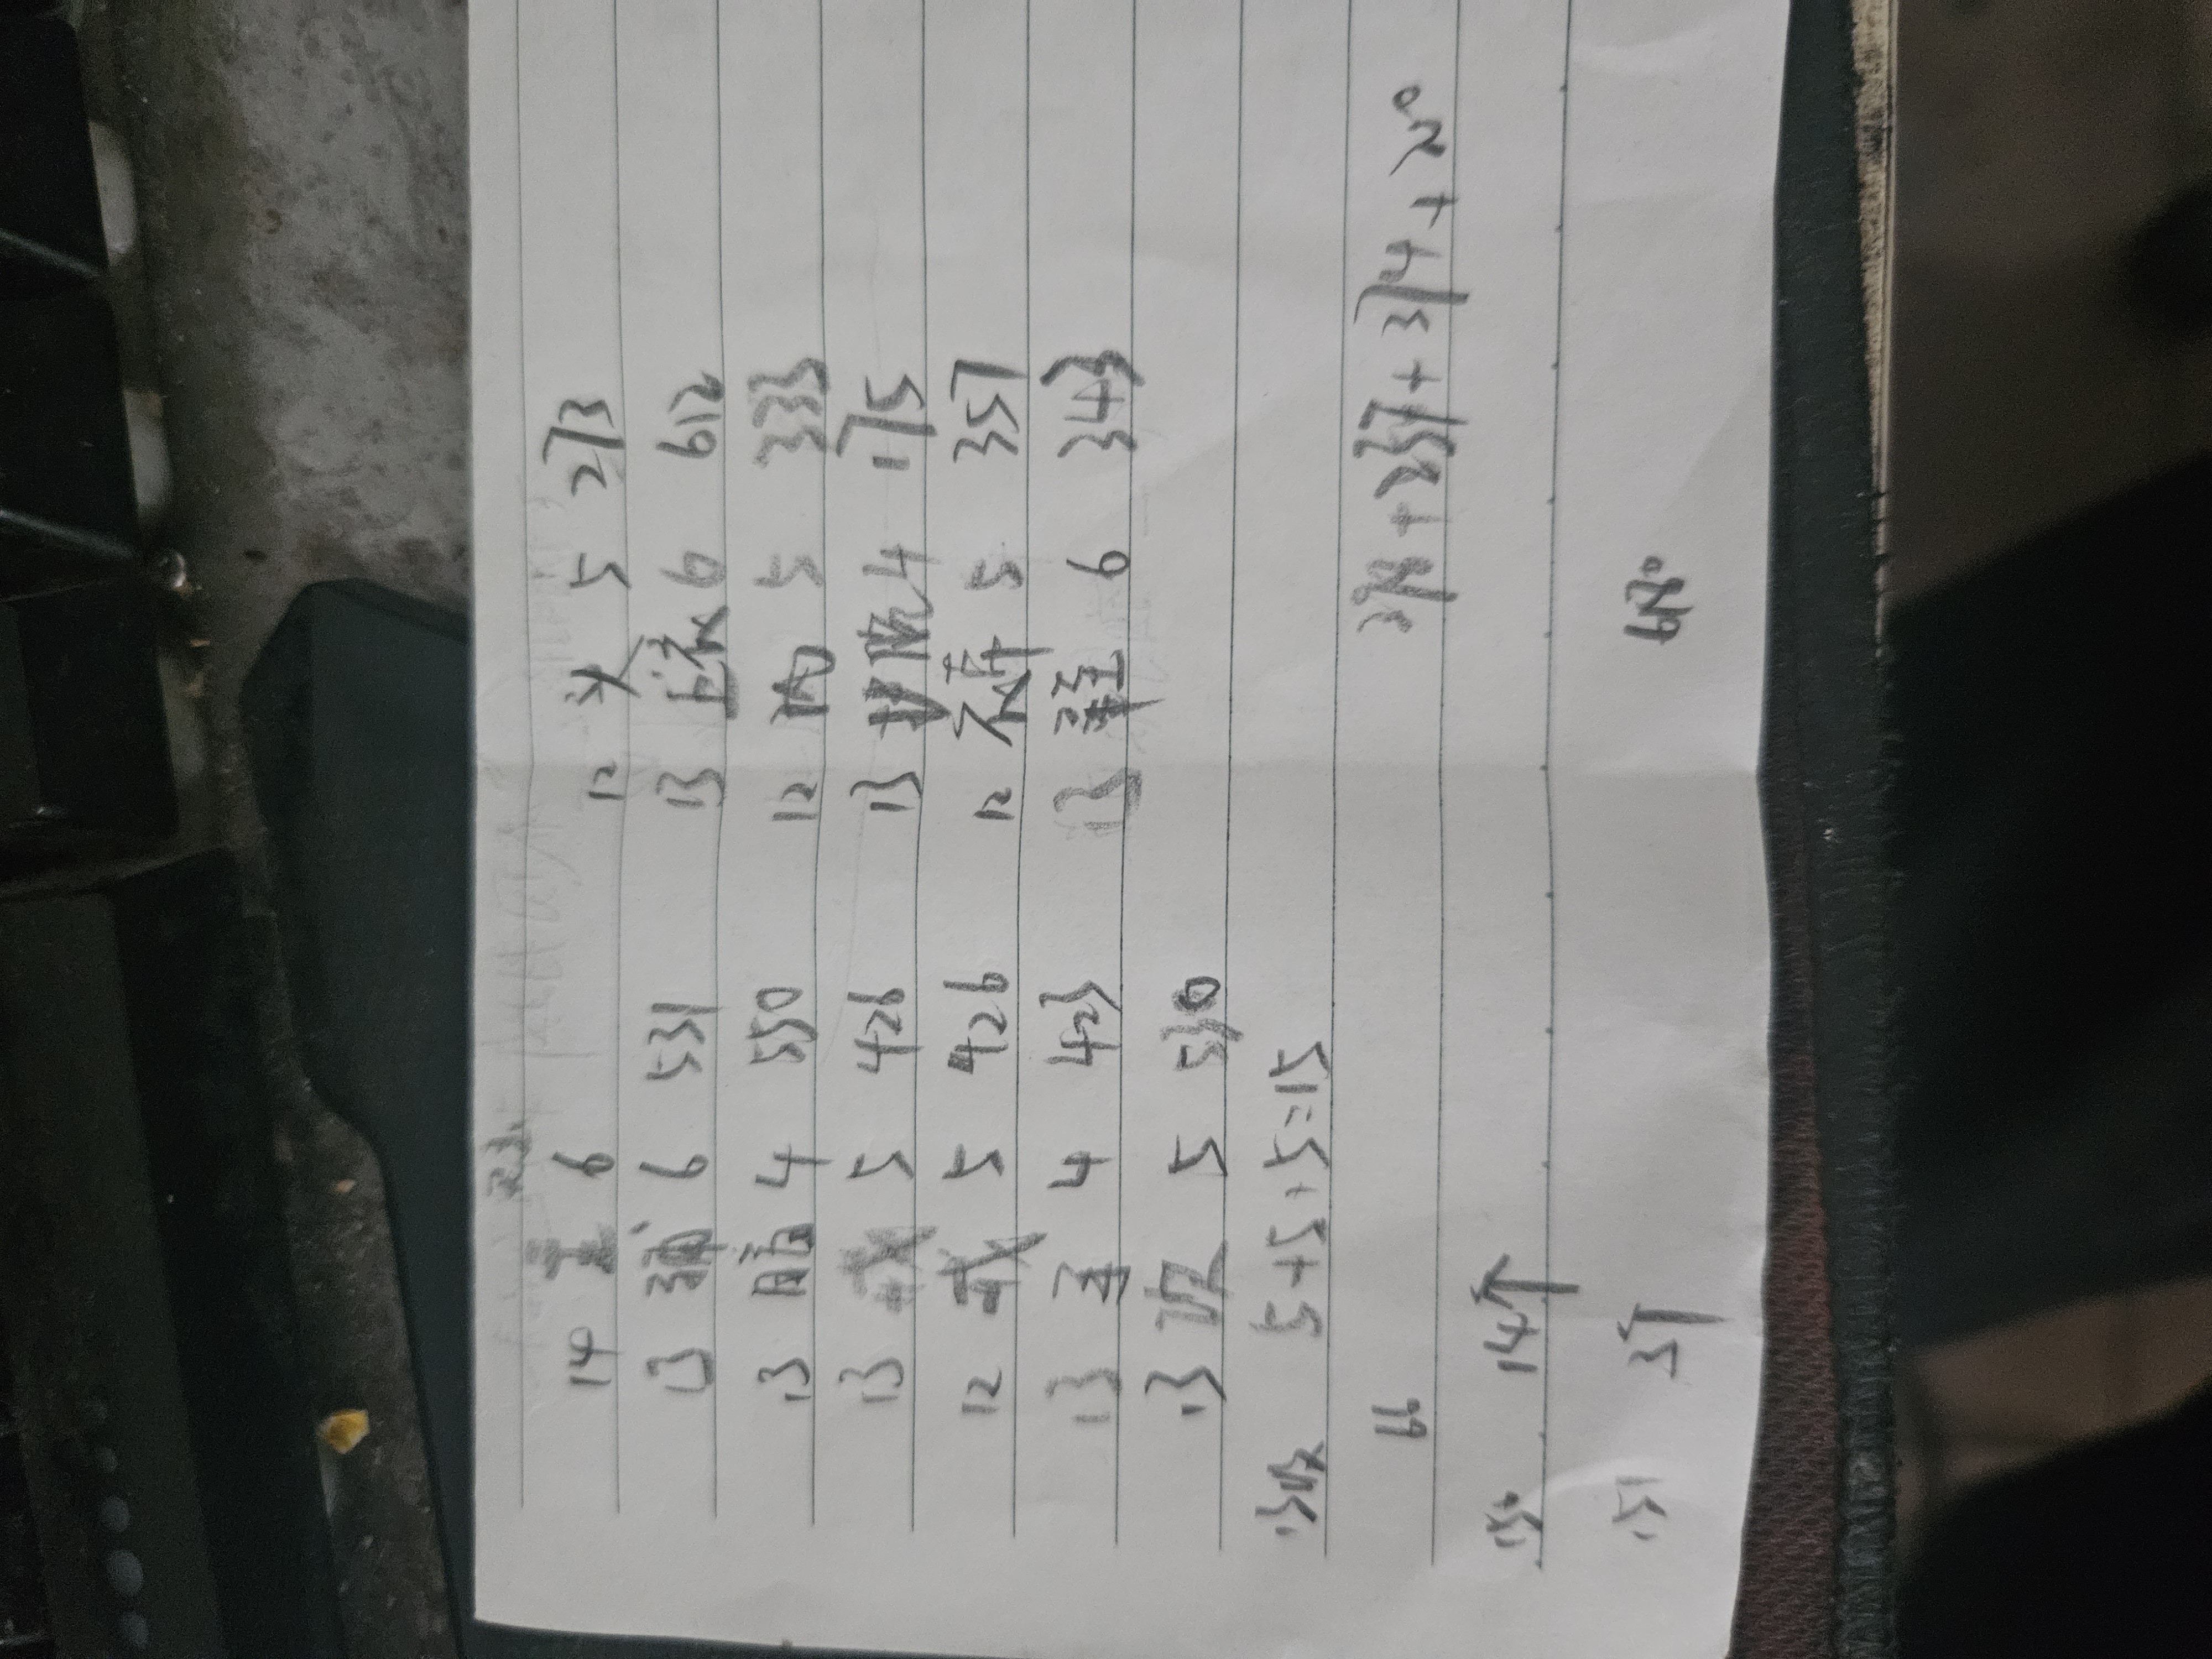 14 主 6
13 辅 6 531
13 暗 4 550
13 戒 5 426
12 戒 5 426
13 手 4 423
13 次 5 530
13级 5+5+5=15
66
150 14个
151 3个
12 头 5 273
13 上衣 6 612
12 内 5 333
13 护腕 4 175
12 衣库 5 357
13 鞋 6 343
378+237+374+20
6180